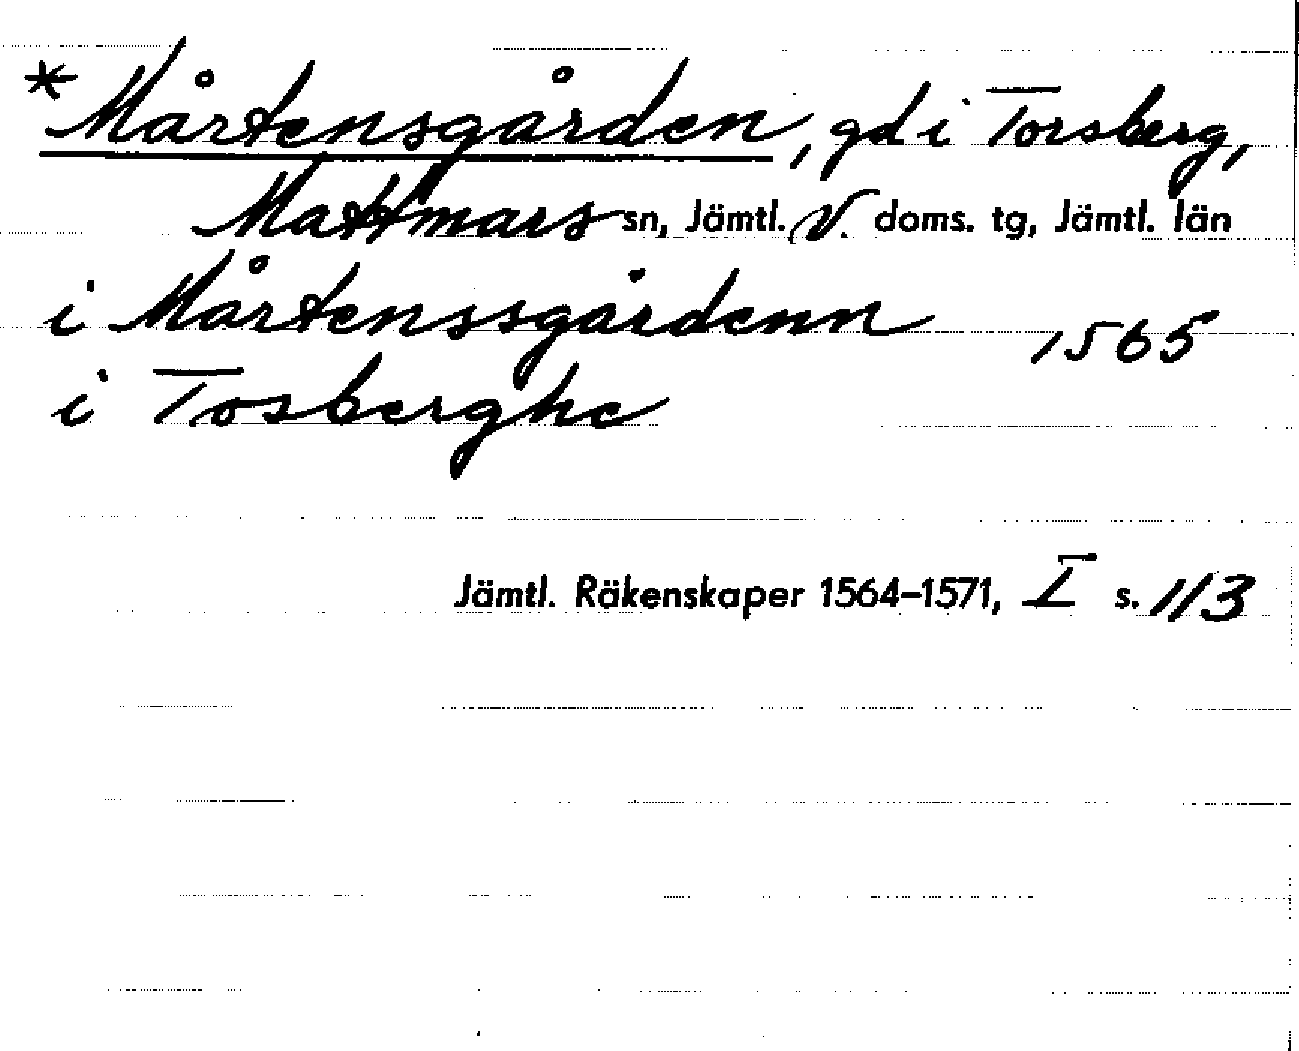 *Mårtensgården, gd i Torsberg,
Mattmars sn, Jämtl. V. doms. tg, Jämtl. län
i Mårtenssgårdenn 1565
i Tosberghe
Jämtl. Räkenskaper 1564–1571, I s. 113